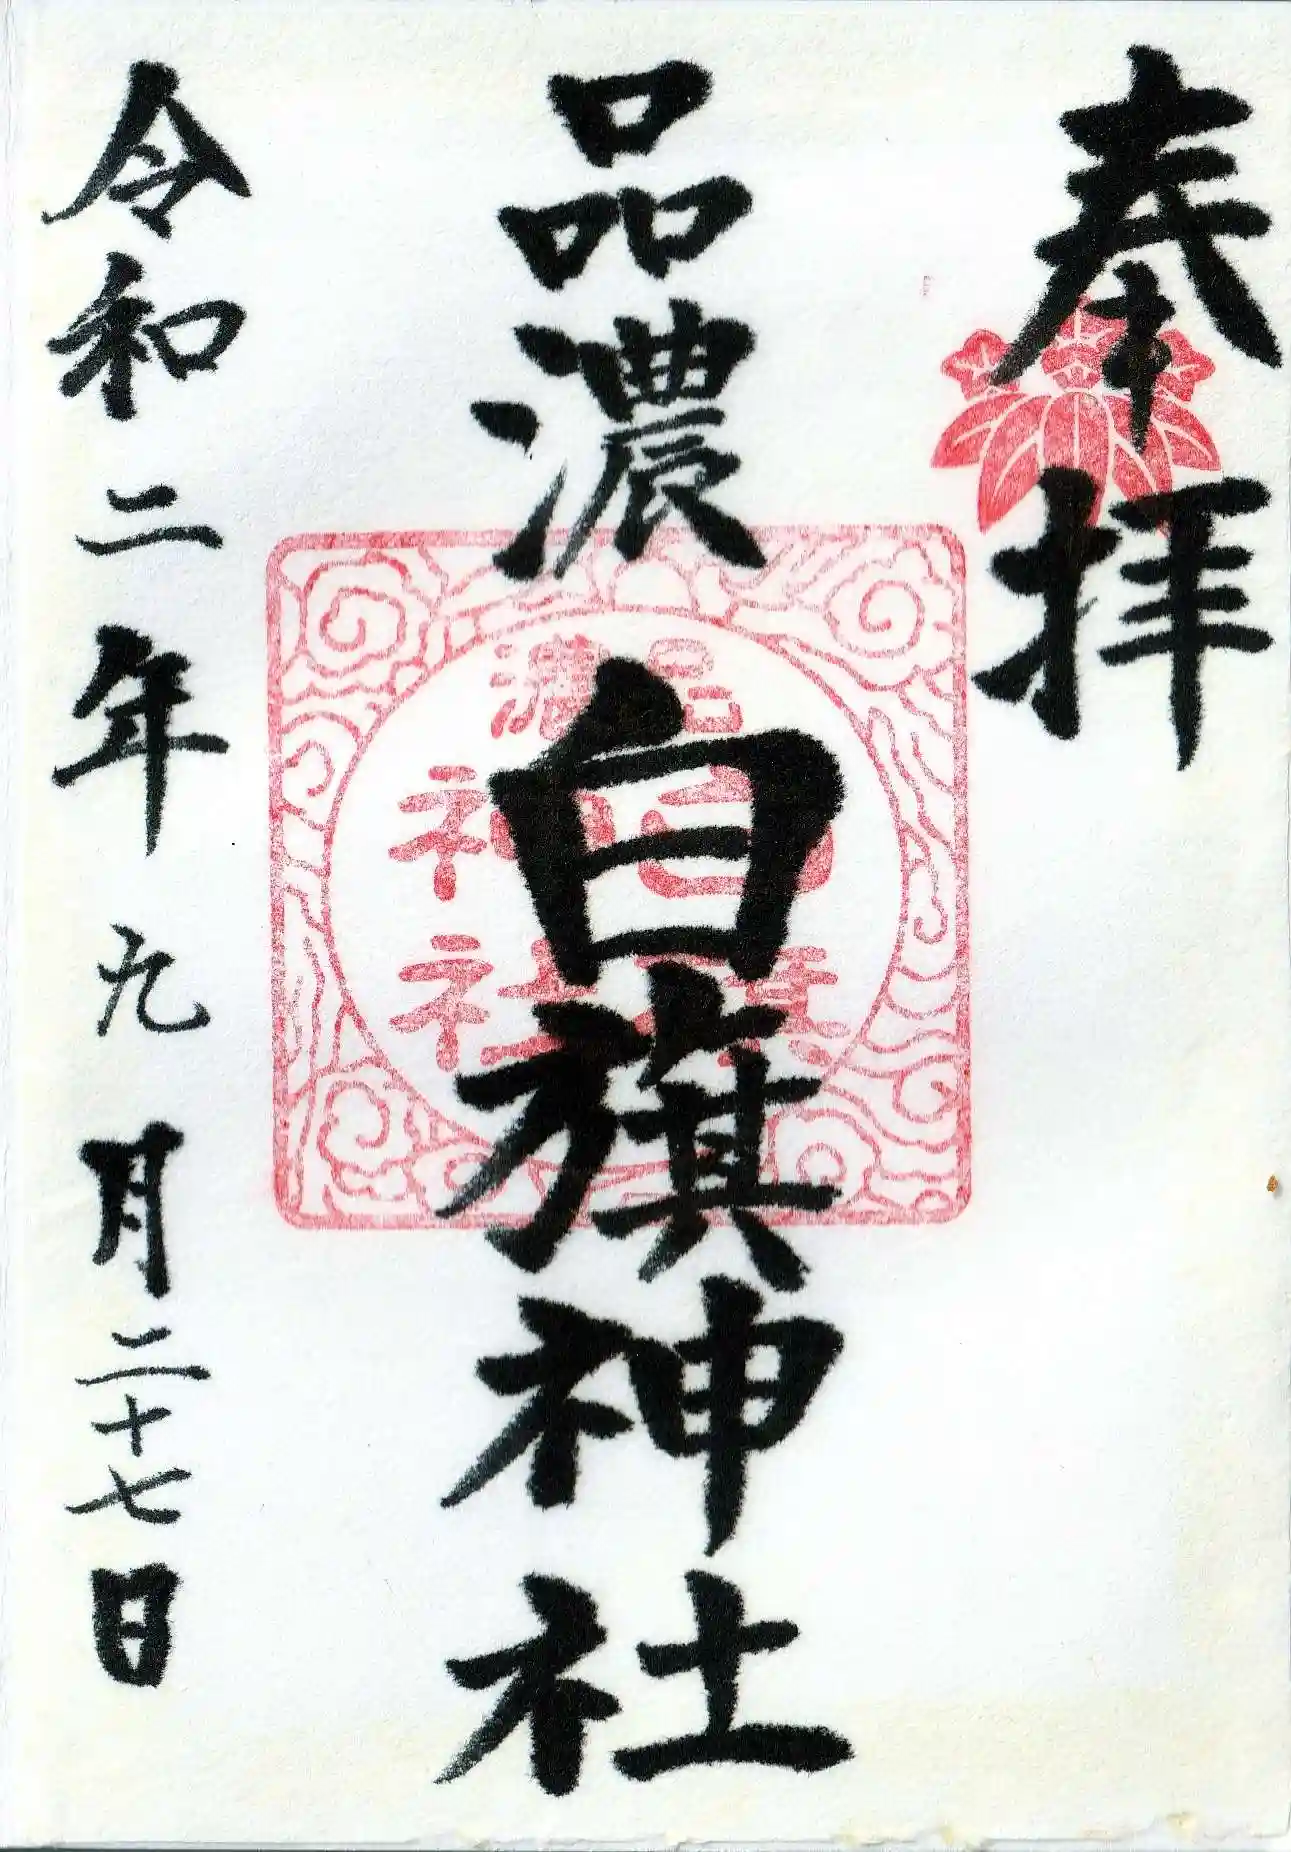 奉拝
品濃白旗神社
品濃
白旗
神社
令和二年九月二十七日